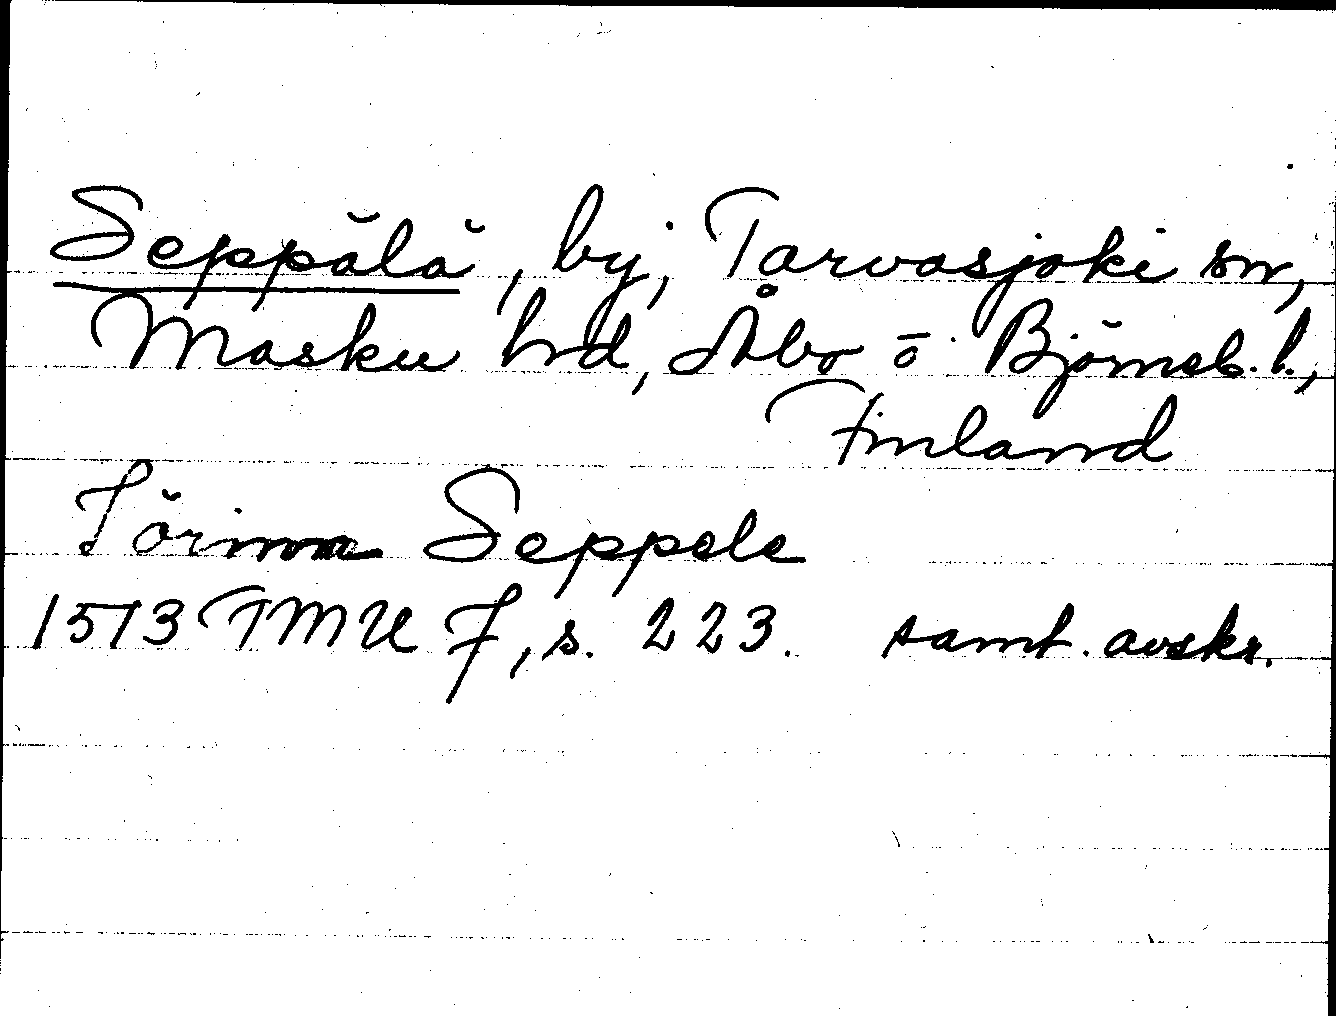 Seppälä, by, Tarvasjoki sn,
Masku hd, Åbo o. Björneb. l.,
Finland
Jöriman Seppele
1513 TMU 7, s. 223. samt. avskr.